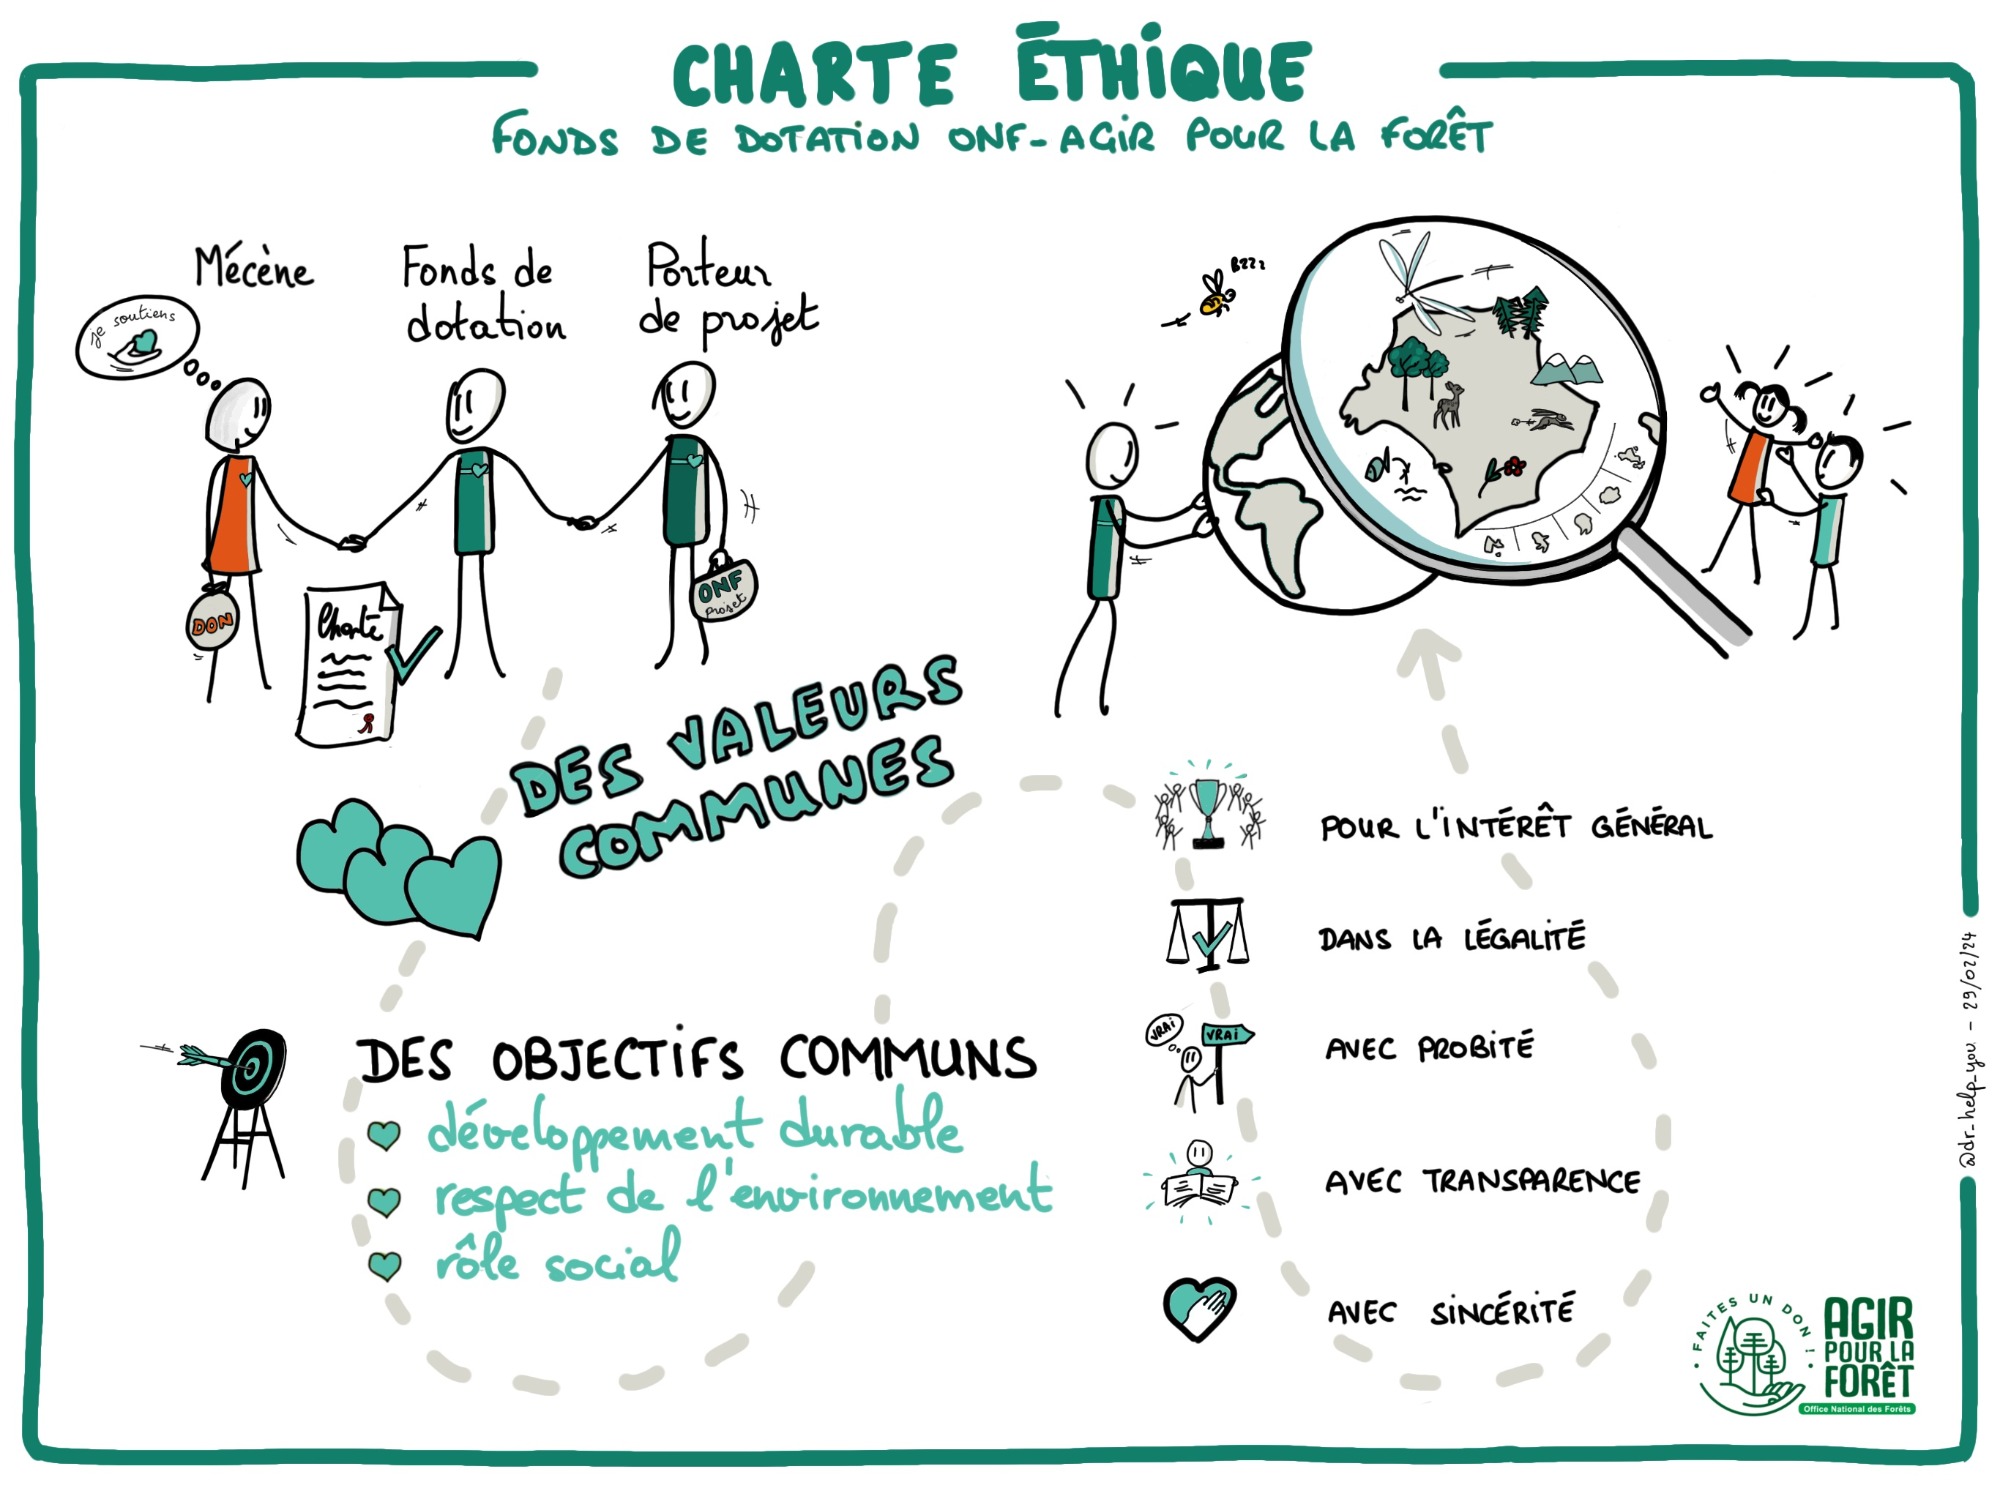 CHARTE ÉTHIQUE
FONDS DE DOTATION ONF-AGIR POUR LA FORÊT
Mécène
Fonds de
dotation
Porteur
de projet
je soutiens
DON
Charte
ONF
projet
BZZZ
DES VALEURS
COMMUNES
DES OBJECTIFS COMMUNS
développement durable
respect de l'environnement
rôle social
POUR L'INTÉRÊT GÉNÉRAL
DANS LA LÉGALITÉ
VRAI
VRAI
AVEC PROBITÉ
AVEC TRANSPARENCE
AVEC SINCÉRITÉ
@dr_help_you - 29/02/24
FAITES UN DON !
AGIR
POUR LA
FORÊT
Office National des Forêts